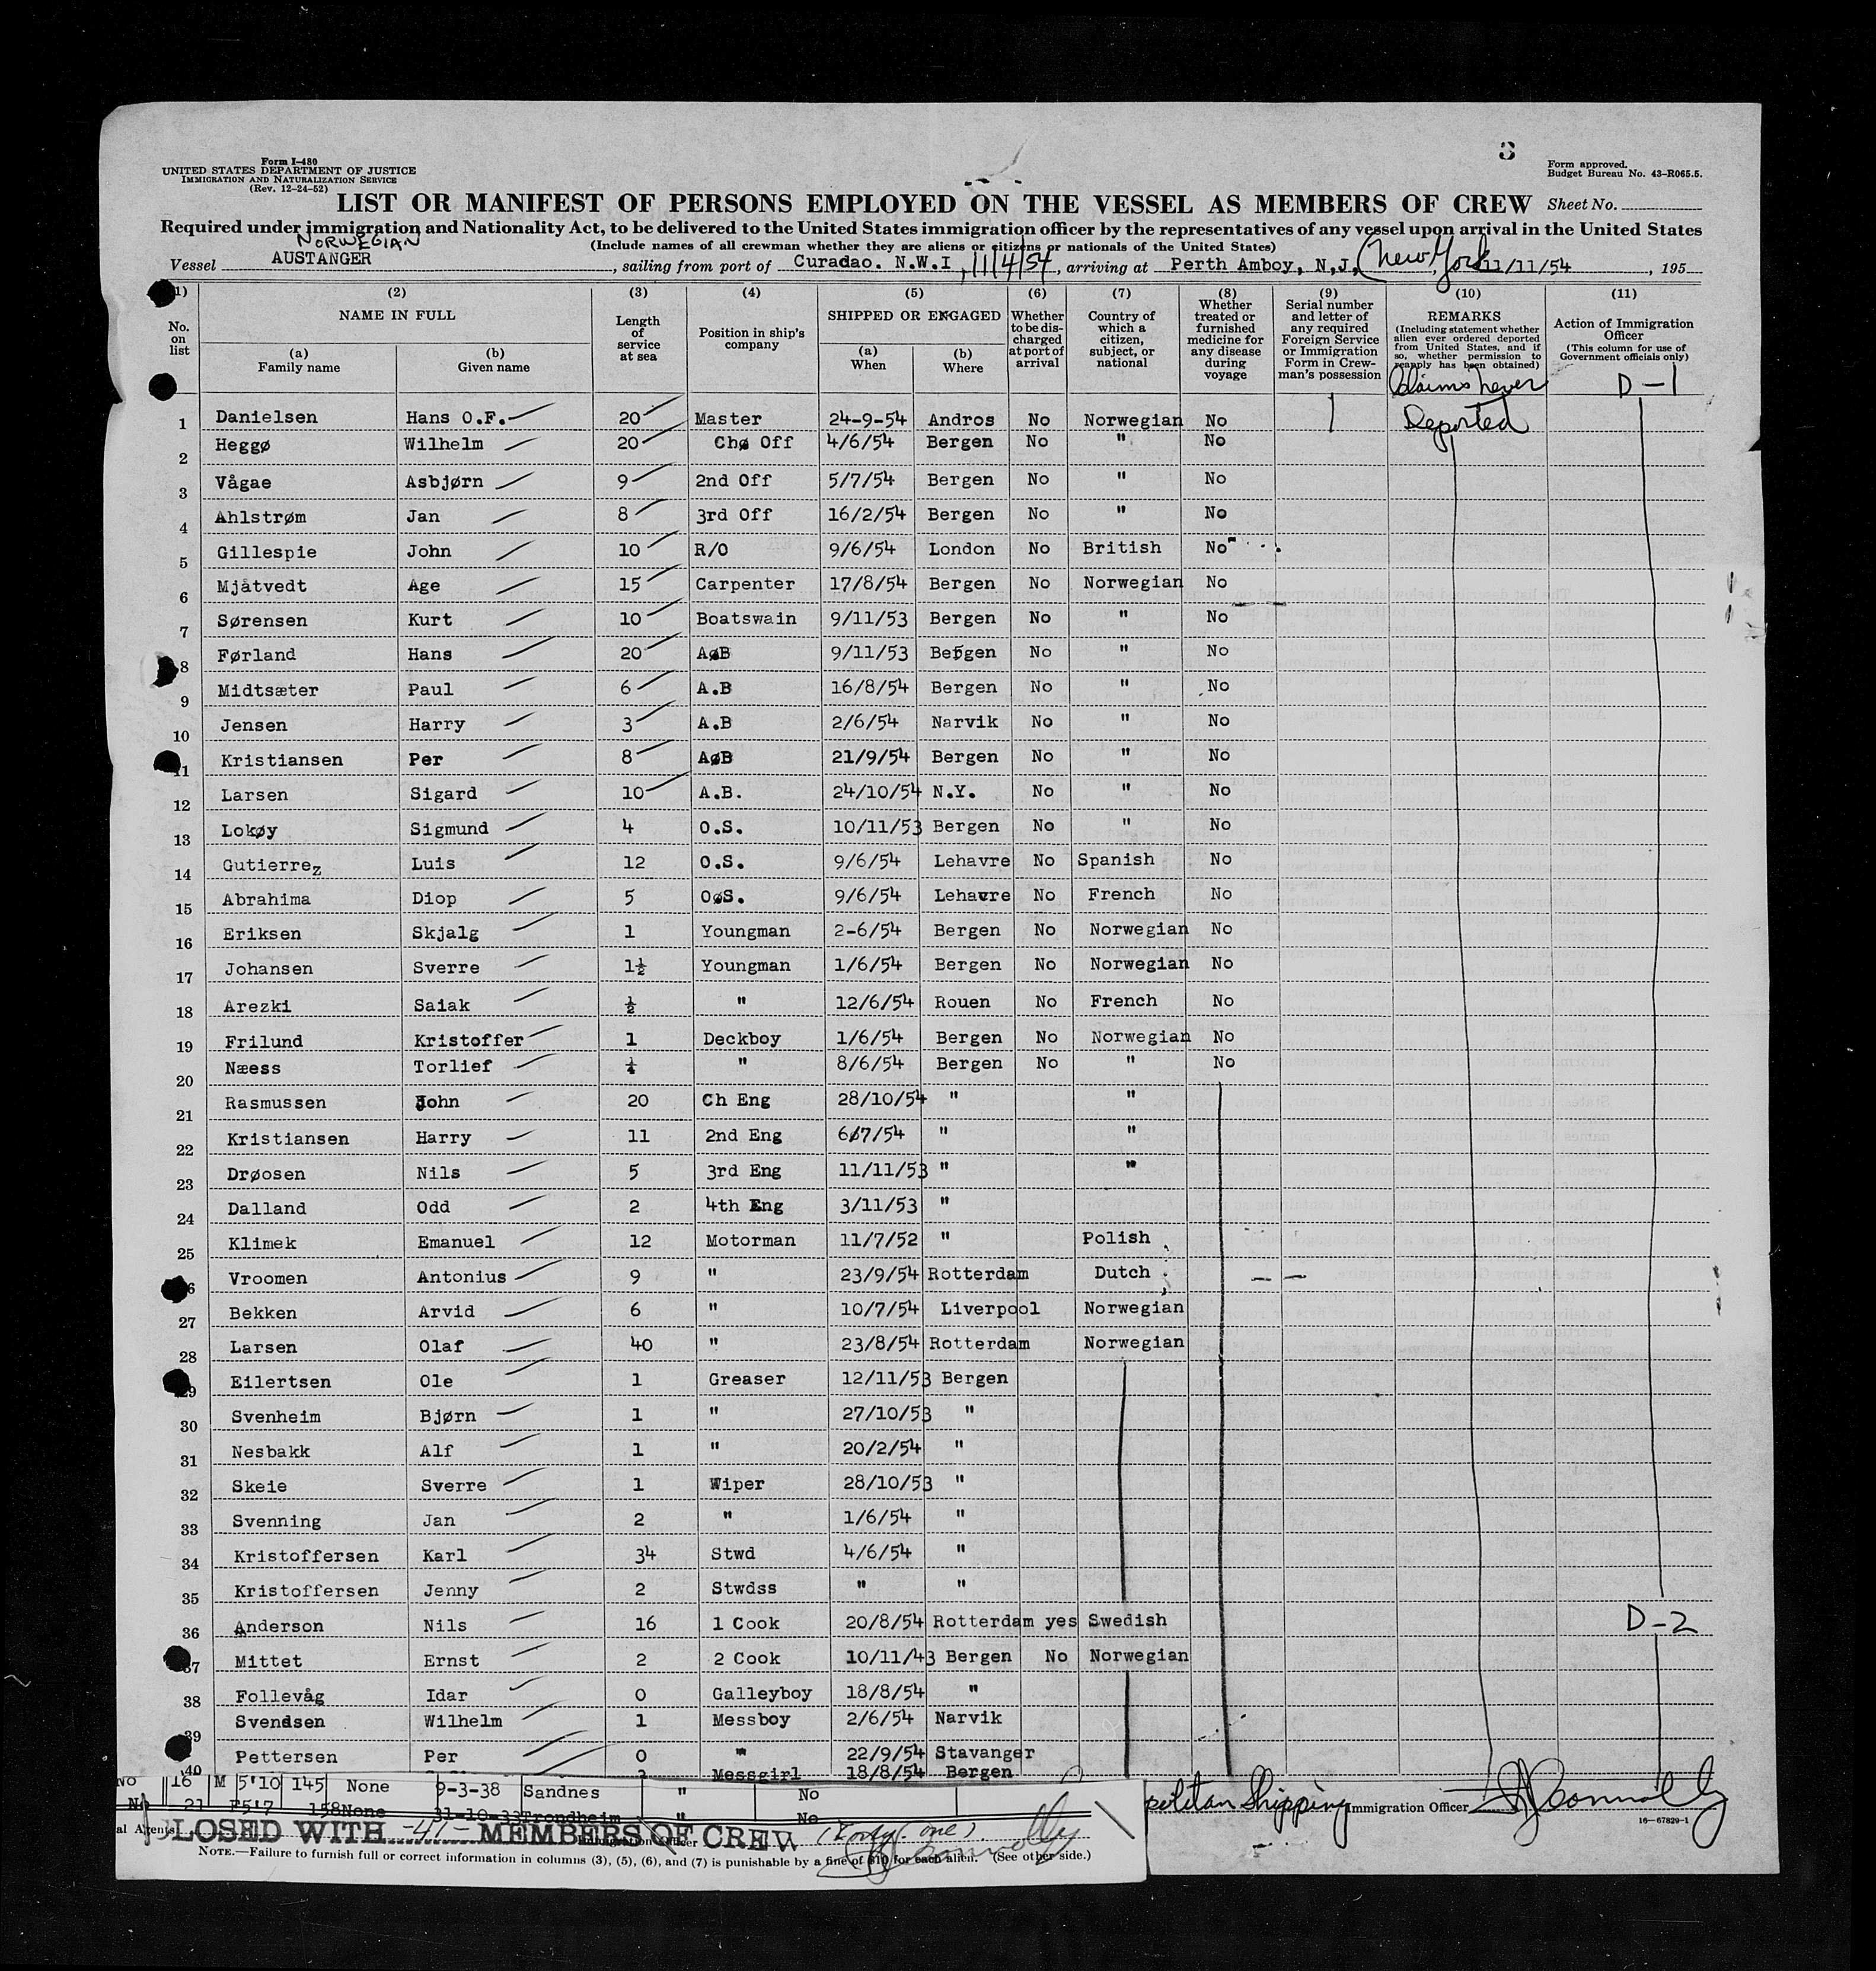 3
Form I-480
UNITED STATES DEPARTMENT OF JUSTICE
IMMIGRATION AND NATURALIZATION SERVICE
(Rev. 12-24-52)
Form approved.
Budget Bureau No. 43-R065.5.
LIST OR MANIFEST OF PERSONS EMPLOYED ON THE VESSEL AS MEMBERS OF CREW Sheet No.
Required under immigration and Nationality Act, to be delivered to the United States immigration officer by the representatives of any vessel upon arrival in the United States
(Include names of all crewman whether they are aliens or citizens or nationals of the United States)
NORWEGIAN
Vessel AUSTANGER, sailing from port of Curadao. N.W.I, 11/4/54, arriving at Perth Amboy, N,J, (New York 11/11/54, 195
(1) (2) (3) (4) (5) (6) (7) (8) (9) (10) (11)
No. on list
NAME IN FULL
(a) Family name
(b) Given name
Length of service at sea
Position in ship's company
SHIPPED OR ENGAGED
(a) When
(b) Where
Whether to be discharged at port of arrival
Country of which a citizen, subject, or national
Whether treated or furnished medicine for any disease during voyage
Serial number and letter of any required Foreign Service or Immigration Form in Crewman's possession
REMARKS
(Including statement whether alien ever ordered deported from United States, and if so, whether permission to reapply has been obtained)
Action of Immigration Officer
(This column for use of Government officials only)
Claims never D-1
1 Danielsen Hans O.F. 20 Master 24-9-54 Andros No Norwegian No Deported
2 Heggø Wilhelm 20 Chø Off 4/6/54 Bergen No " No
3 Vågae Asbjørn 9 2nd Off 5/7/54 Bergen No " No
4 Ahlstrøm Jan 8 3rd Off 16/2/54 Bergen No " No
5 Gillespie John 10 R/O 9/6/54 London No British No
6 Mjåtvedt Age 15 Carpenter 17/8/54 Bergen No Norwegian No
7 Sørensen Kurt 10 Boatswain 9/11/53 Bergen No " No
8 Førland Hans 20 AøB 9/11/53 Bergen No " No
9 Midtsæter Paul 6 A.B 16/8/54 Bergen No " No
10 Jensen Harry 3 A.B 2/6/54 Narvik No " No
11 Kristiansen Per 8 AøB 21/9/54 Bergen No " No
12 Larsen Sigard 10 A.B. 24/10/54 N.Y. No " No
13 Lokøy Sigmund 4 O.S. 10/11/53 Bergen No " No
14 Gutierrez Luis 12 O.S. 9/6/54 Lehavre No Spanish No
15 Abrahima Diop 5 OøS. 9/6/54 Lehavre No French No
16 Eriksen Skjalg 1 Youngman 2-6/54 Bergen No Norwegian No
17 Johansen Sverre 1½ Youngman 1/6/54 Bergen No Norwegian No
18 Arezki Saiak ½ " 12/6/54 Rouen No French No
19 Frilund Kristoffer 1 Deckboy 1/6/54 Bergen No Norwegian No
20 Næess Torlief ¼ " 8/6/54 Bergen No " No
21 Rasmussen John 20 Ch Eng 28/10/54 " "
22 Kristiansen Harry 11 2nd Eng 6/7/54 " "
23 Drøosen Nils 5 3rd Eng 11/11/53 " "
24 Dalland Odd 2 4th Eng 3/11/53 "
25 Klimek Emanuel 12 Motorman 11/7/52 " Polish
26 Vroomen Antonius 9 " 23/9/54 Rotterdam Dutch
27 Bekken Arvid 6 " 10/7/54 Liverpool Norwegian
28 Larsen Olaf 40 " 23/8/54 Rotterdam Norwegian
29 Eilertsen Ole 1 Greaser 12/11/53 Bergen
30 Svenheim Bjørn 1 " 27/10/53 "
31 Nesbakk Alf 1 " 20/2/54 "
32 Skeie Sverre 1 Wiper 28/10/53 "
33 Svenning Jan 2 " 1/6/54 "
34 Kristoffersen Karl 34 Stwd 4/6/54 "
35 Kristoffersen Jenny 2 Stwdss " "
36 Anderson Nils 16 1 Cook 20/8/54 Rotterdam yes Swedish D-2
37 Mittet Ernst 2 2 Cook 10/11/43 Bergen No Norwegian
38 Follevåg Idar 0 Galleyboy 18/8/54 "
39 Svendsen Wilhelm 1 Messboy 2/6/54 Narvik
40 Pettersen Per 0 " 22/9/54 Stavanger
Messgirl 18/8/54 Bergen
No 16 M 5'10 145 None 9-3-38 Sandnes " No
No 21 F5'7 158None 31-10-33Trondheim " No
politan Shipping Immigration Officer Connolly
al Agents
CLOSED WITH -41- MEMBERS OF CREW (Forty-one).
Immigration Officer
16-67829-1
NOTE.—Failure to furnish full or correct information in columns (3), (5), (6), and (7) is punishable by a fine of $10 for each alien. (See other side.)